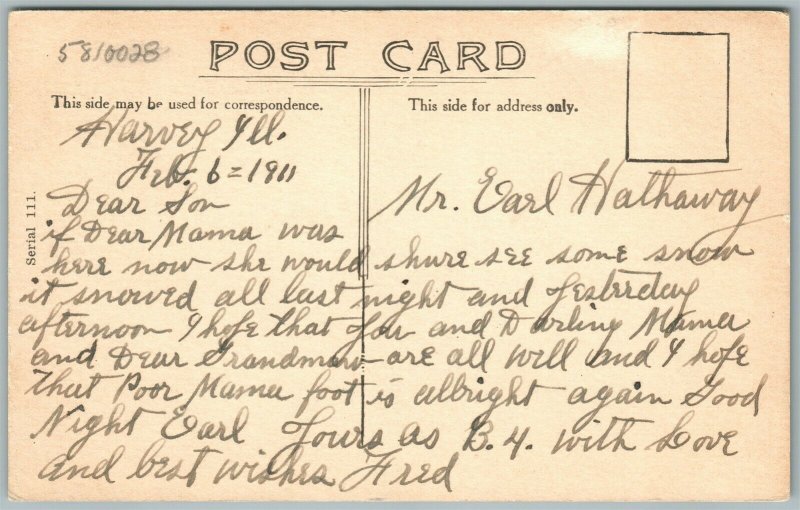 5810028
POST CARD
This side may be used for correspondence.
This side for address only.
Serial 111.
Harvey Ill.
Feb. 6 = 1911
Mr. Earl Hathaway
Dear Son
if Dear Mama was
here now she would shure see some snow
it snowed all last night and Yesterday
afternoon I hope that You and Darling Mama
and Dear Grandmaw are all will and I hope
that Poor Mama foot is allbright again Good
Night Earl Yours as B.4. with Love
and best wishes Fred